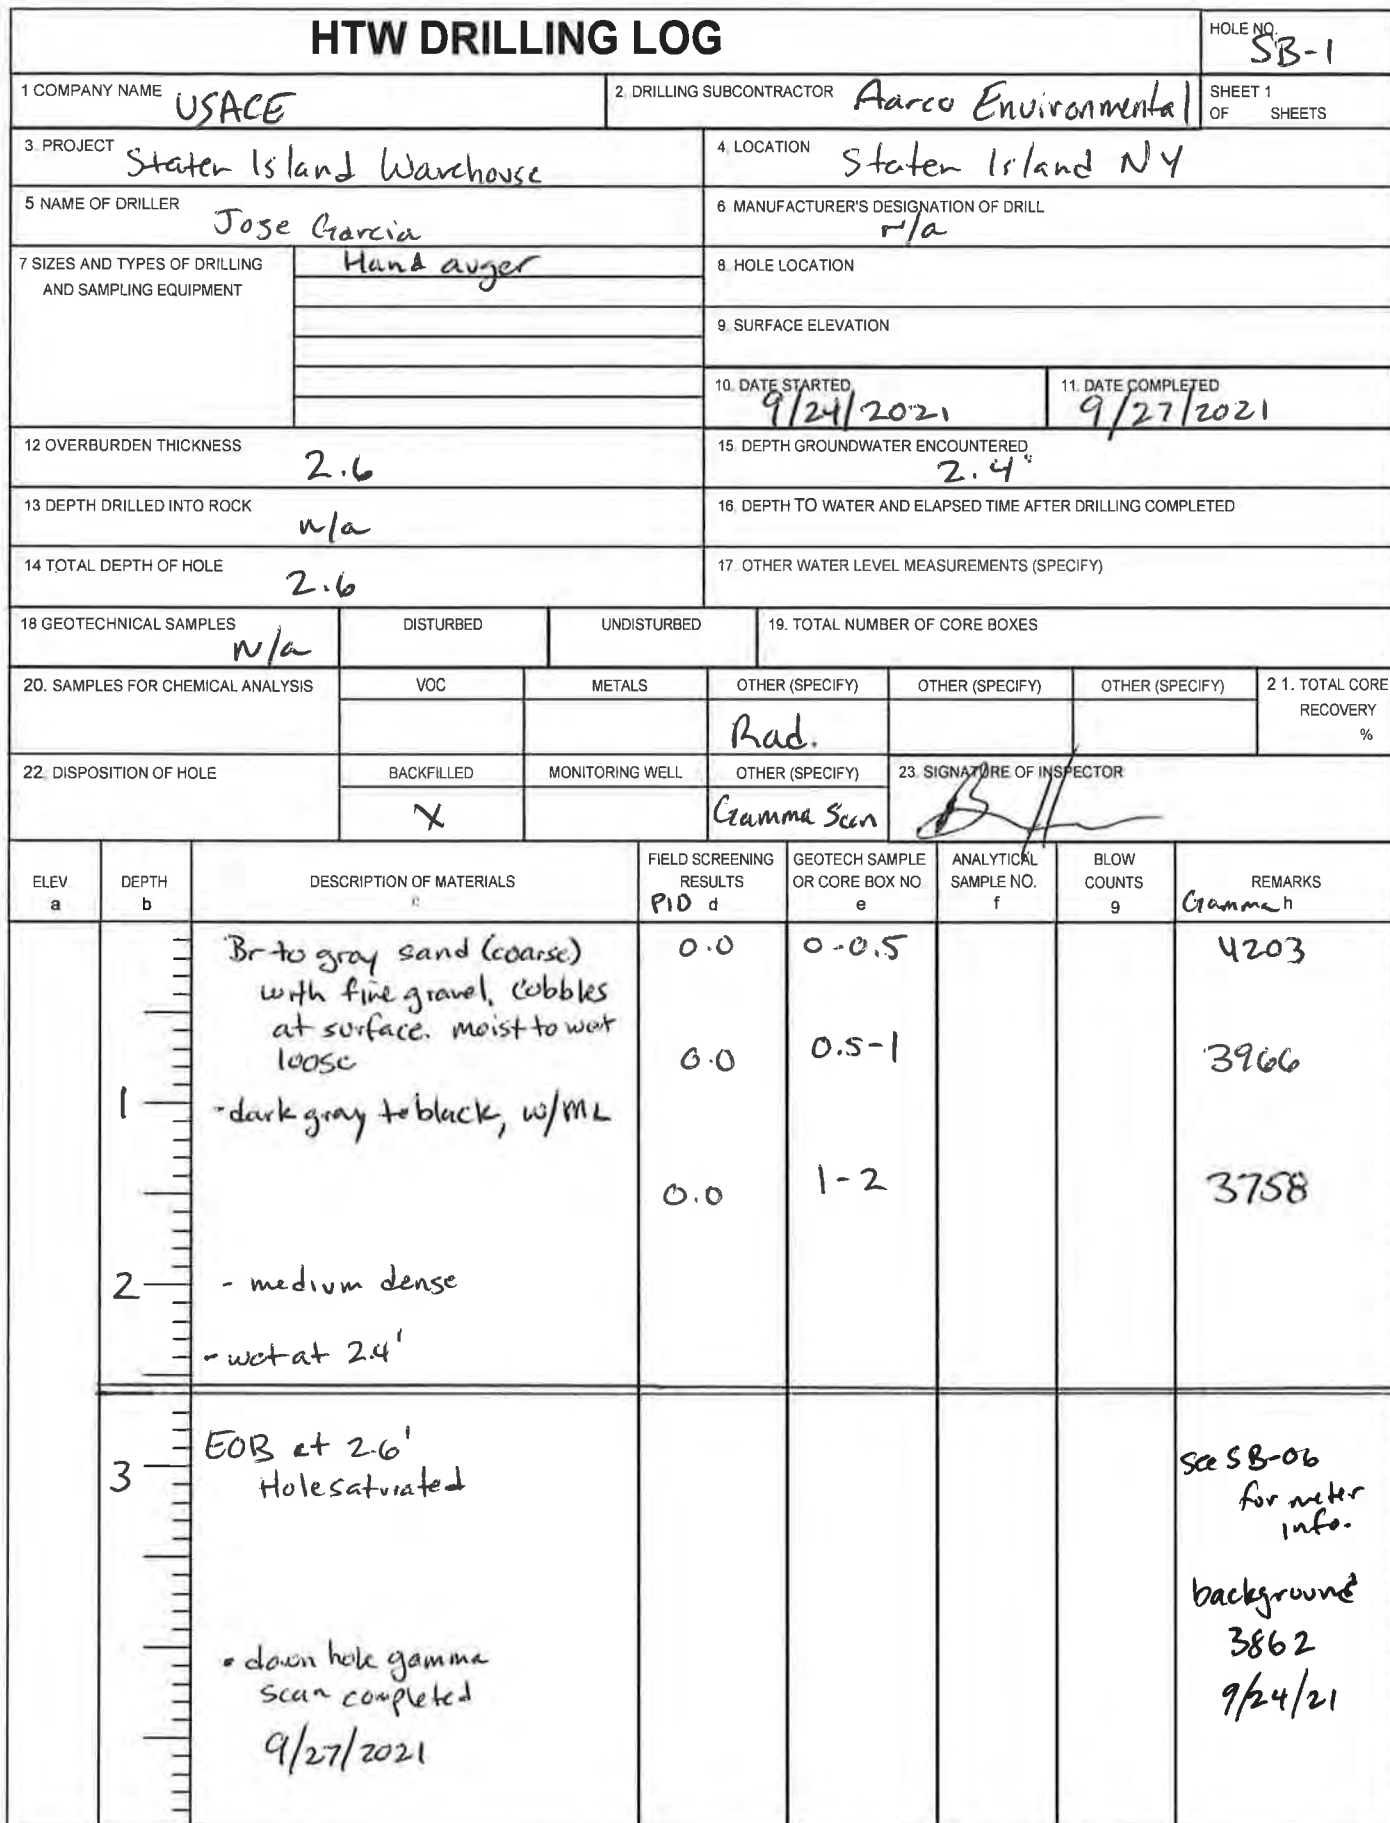 HTW DRILLING LOG
HOLE NO.
SB-1
1 COMPANY NAME USACE
2. DRILLING SUBCONTRACTOR Aarco Environmental
SHEET 1
OF SHEETS
3. PROJECT Staten Island Warehouse
4. LOCATION Staten Island NY
5 NAME OF DRILLER Jose Garcia
6 MANUFACTURER'S DESIGNATION OF DRILL
n/a
7 SIZES AND TYPES OF DRILLING
AND SAMPLING EQUIPMENT
Hand auger
8. HOLE LOCATION
9. SURFACE ELEVATION
10. DATE STARTED
9/24/2021
11. DATE COMPLETED
9/27/2021
12 OVERBURDEN THICKNESS
2.6
15. DEPTH GROUNDWATER ENCOUNTERED
2.4'
13 DEPTH DRILLED INTO ROCK
n/a
16. DEPTH TO WATER AND ELAPSED TIME AFTER DRILLING COMPLETED
14 TOTAL DEPTH OF HOLE
2.6
17. OTHER WATER LEVEL MEASUREMENTS (SPECIFY)
18 GEOTECHNICAL SAMPLES
N/a
DISTURBED
UNDISTURBED
19. TOTAL NUMBER OF CORE BOXES
20. SAMPLES FOR CHEMICAL ANALYSIS
VOC
METALS
OTHER (SPECIFY)
OTHER (SPECIFY)
OTHER (SPECIFY)
2 1. TOTAL CORE
RECOVERY
%
Rad.
22. DISPOSITION OF HOLE
BACKFILLED
MONITORING WELL
OTHER (SPECIFY)
23. SIGNATURE OF INSPECTOR
X
Gamma Scan
ELEV
a
DEPTH
b
DESCRIPTION OF MATERIALS
c
FIELD SCREENING
RESULTS
PID d
GEOTECH SAMPLE
OR CORE BOX NO
e
ANALYTICAL
SAMPLE NO.
f
BLOW
COUNTS
g
REMARKS
Gamma h
Br to gray sand (coarse)
0.0
0-0.5
4203
with fine gravel, cobbles
at surface. moist to wet
loose
0.0
0.5-1
3966
1
- dark gray to black, w/ML
0.0
1-2
3758
2
- medium dense
- wet at 2.4'
EOB at 2.6'
3
Hole saturated
see SB-06
for meter
info.
background
3862
9/24/21
• down hole gamma
scan completed
9/27/2021